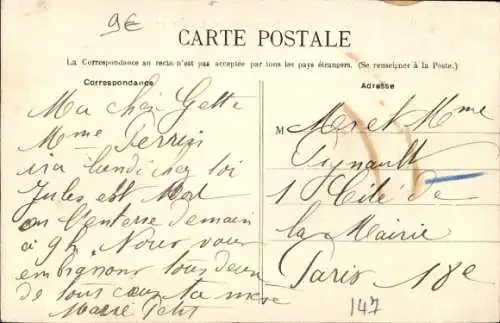 9€
CARTE POSTALE
La Correspondance au recto n'est pas acceptée par tous les pays étrangers. (Se renseigner à la Poste.)
Correspondance
Adresse
Ma chèr Gette
Mme Perrin
ira lundi chez toi
Jules est Mort
on l'enterre demain
a 9h Nous vous
embrassons tous deux
de tout cœur ta mère
Marie
M Mr et Mme
Pignault
1 Cité de
la Mairie
Paris 18e
147